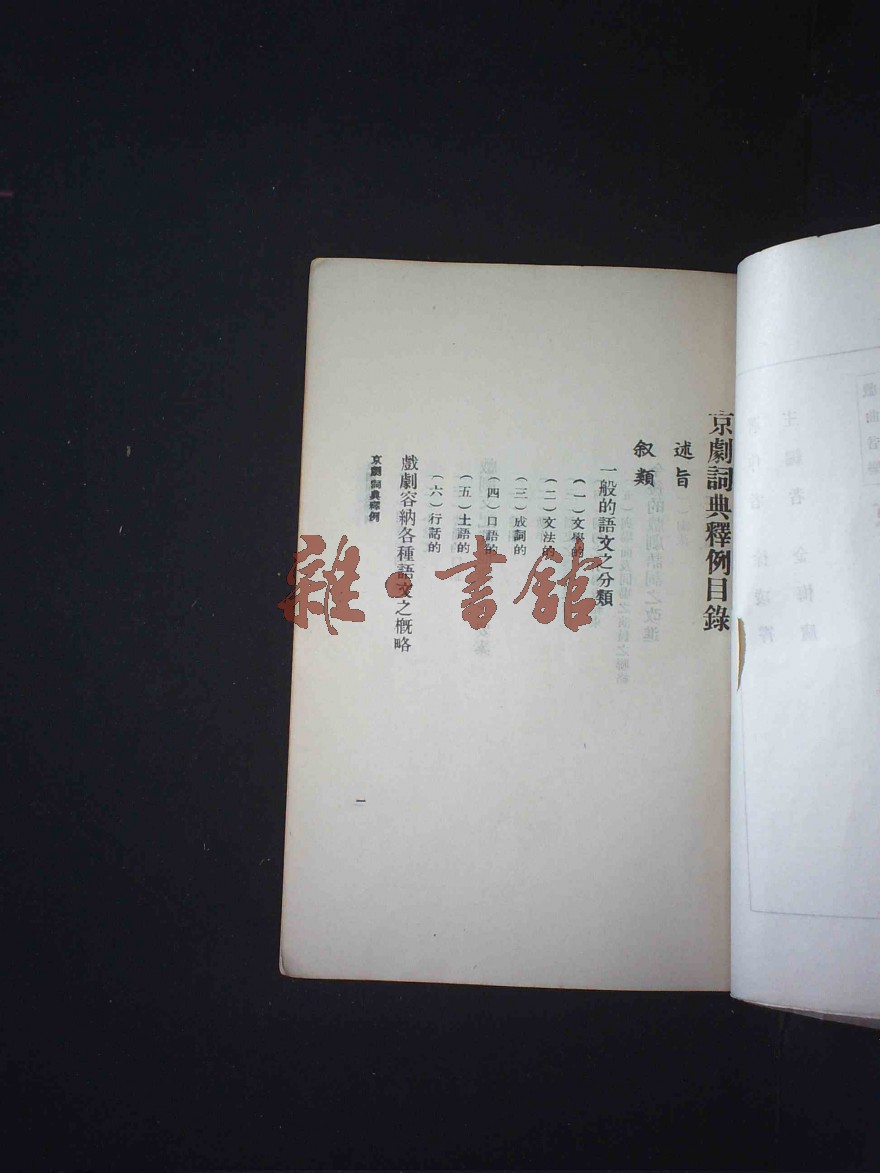 京劇詞典釋例目錄
述旨
叙類
一般的語文之分類
(一)文學的
(二)文法的
(三)成詞的
(四)口語的
(五)土語的
(六)行話的
戲劇容納各種語文之概略
京劇詞典釋例
一
雜·書館